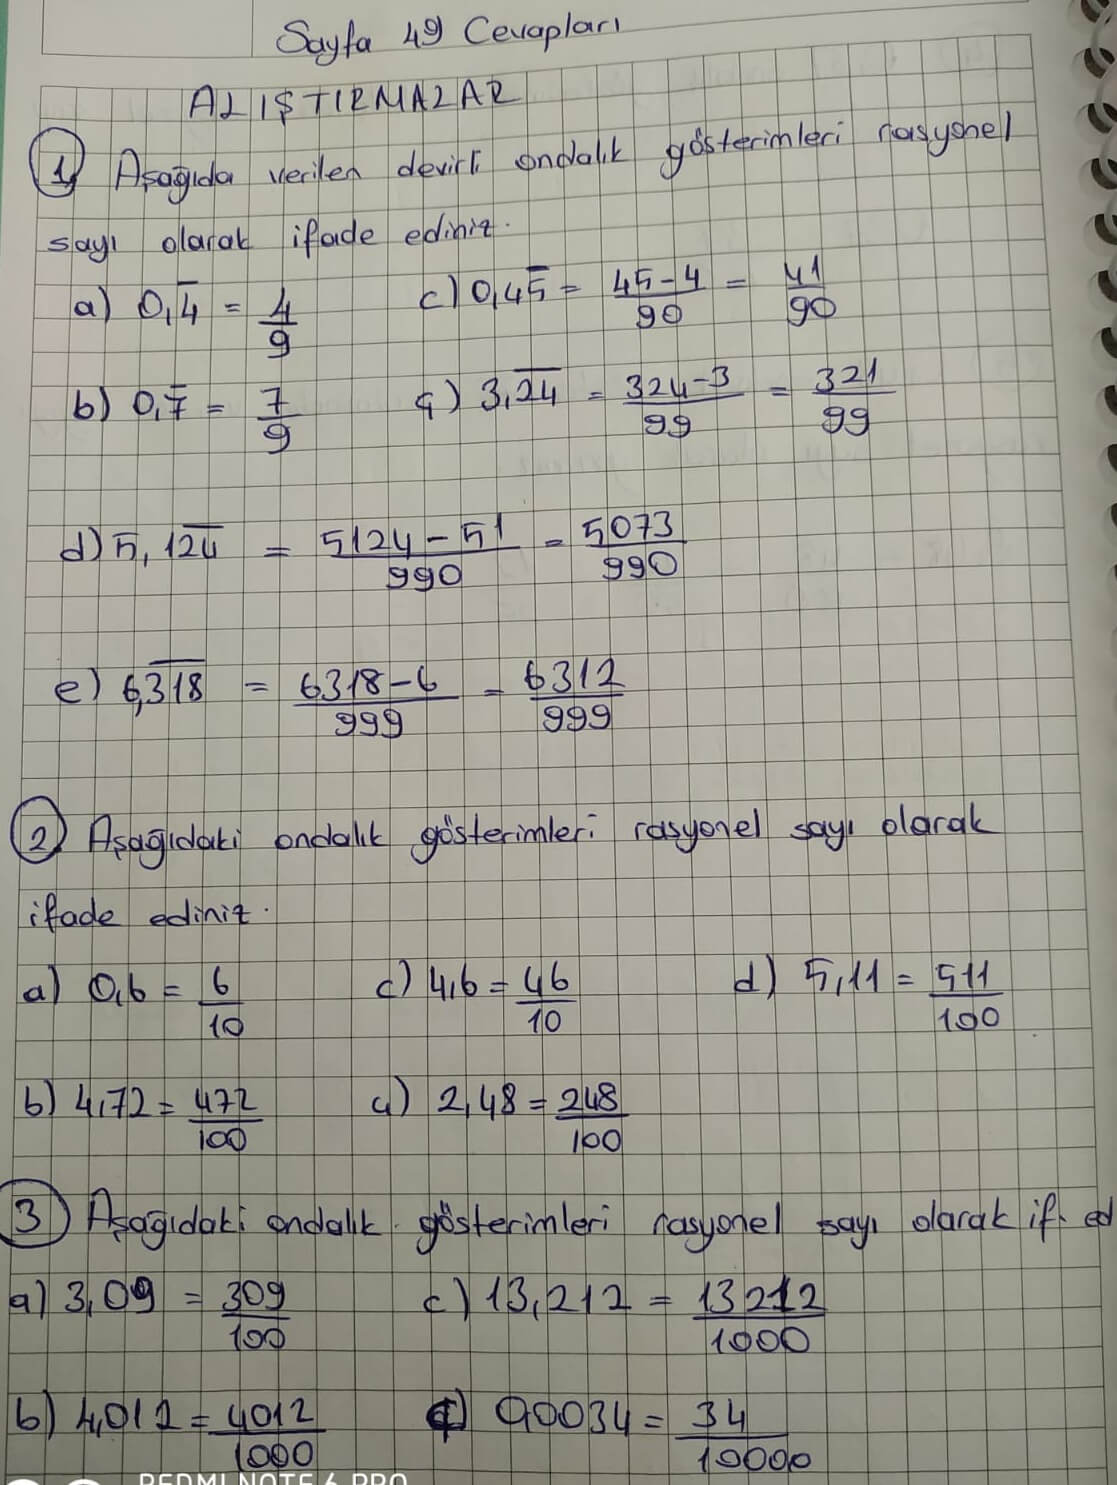 Sayfa 49 Cevapları
ALIŞTIRMALAR
1) Aşağıda verilen devirli ondalık gösterimleri rasyonel
sayı olarak ifade ediniz.
a) 0,4̅ = 4/9 c) 0,45̅ = (45-4)/90 = 41/90
b) 0,7̅ = 7/9 ç) 3,2̅4̅ = (324-3)/99 = 321/99
d) 5,12̅4̅ = (5124-51)/990 = 5073/990
e) 6,3̅1̅8̅ = (6318-6)/999 = 6312/999
2) Aşağıdaki ondalık gösterimleri rasyonel sayı olarak
ifade ediniz.
a) 0,6 = 6/10 c) 4,6 = 46/10 d) 5,11 = 511/100
b) 4,72 = 472/100 ç) 2,48 = 248/100
3) Aşağıdaki ondalık gösterimleri rasyonel sayı olarak if. ed
a) 3,09 = 309/100 c) 13,212 = 13212/1000
b) 4,012 = 4012/1000 ç) 0,0034 = 34/10000
REDMI NOTE 6 PRO